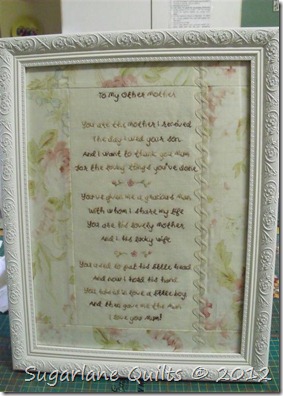 To My Other Mother
You are the mother I received
The day I wed your son
And I want to thank you Mum
For the loving things you've done
You've given me a gracious man
With whom I share my life
You are his lovely mother
And I his lucky wife
You used to pat his little head
And now I hold his hand
You raised in love a little boy
And then gave me the man
I love you Mum!
Sugarlane Quilts © 2012